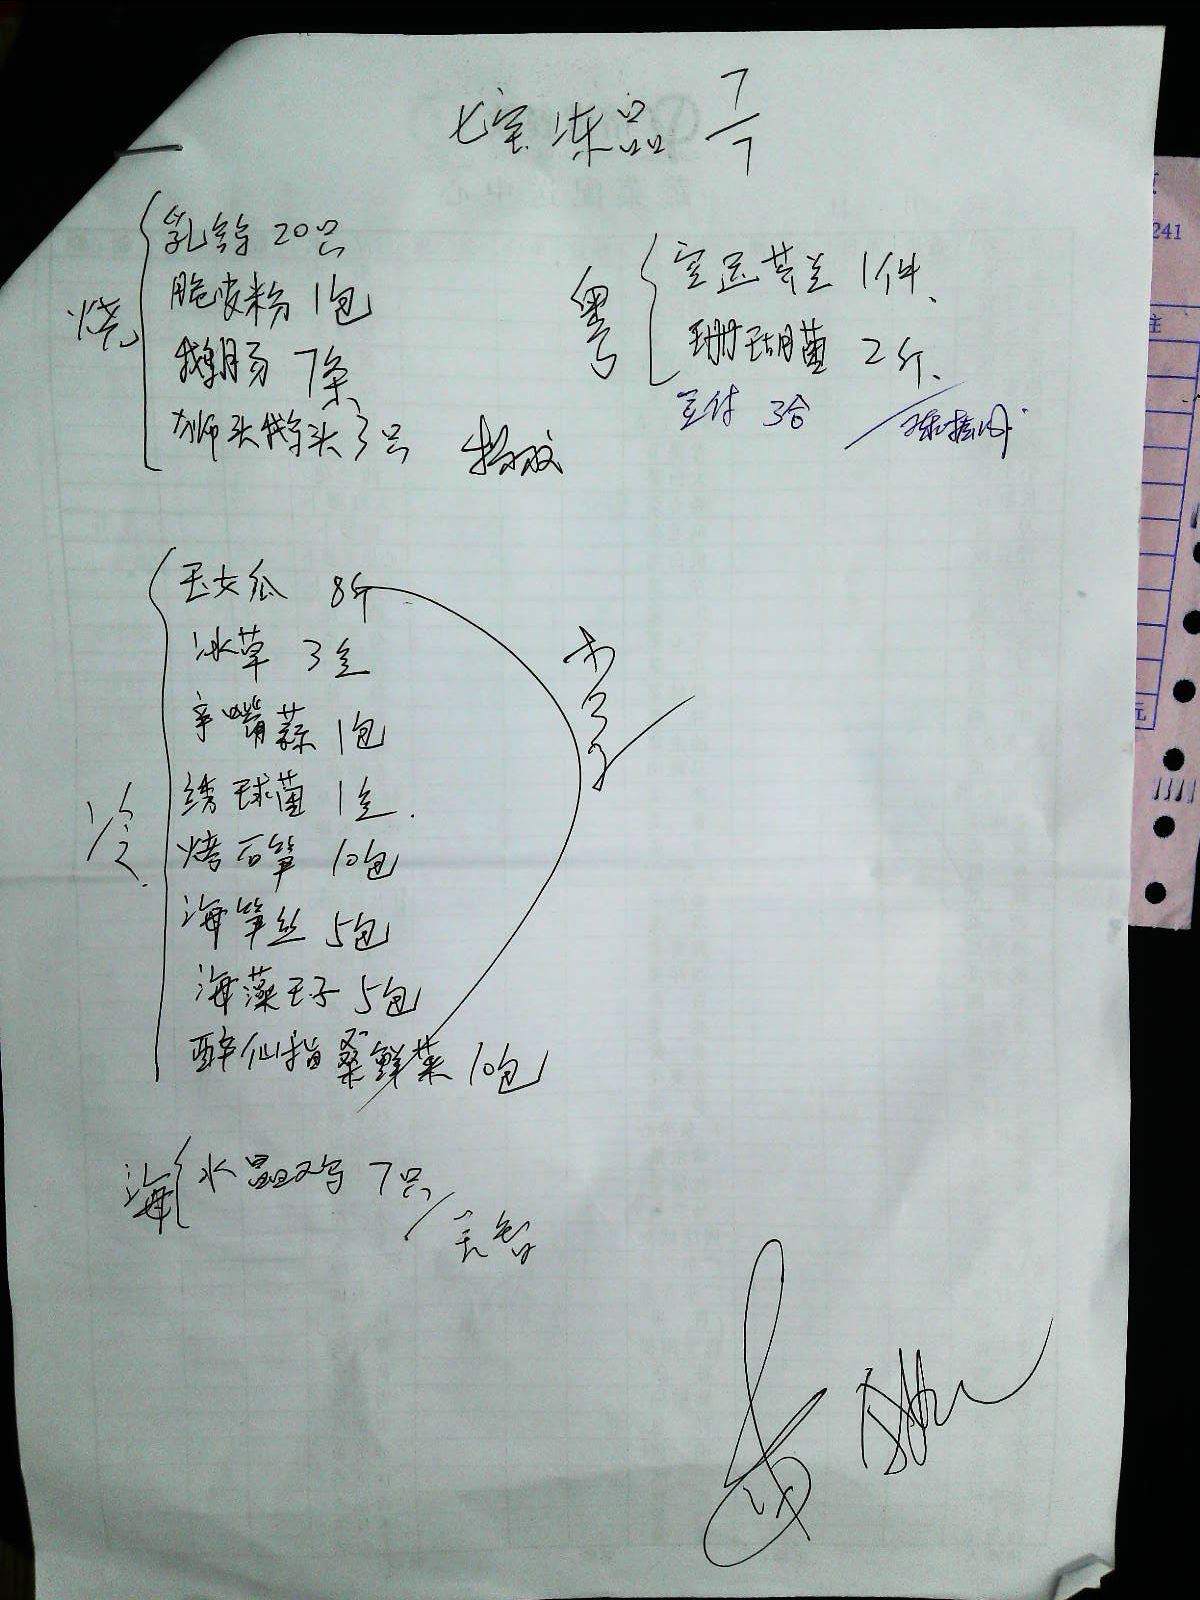 七宝冻品 7/7
烧
乳鸽 20只
脆皮粉 1包
鹅肠 7条
狮头鹅头 3只
粤
空运芥兰 1件
珊瑚菌 2斤
3合
冷
玉女瓜 8斤
冰草 3盒
辛嘴蒜 1包
绣球菌 1盒
烤石笋 10包
海笋丝 5包
海藻玉子 5包
醉仙指桑鲜菜 10包
海
水晶鸡 7只
241
注
元